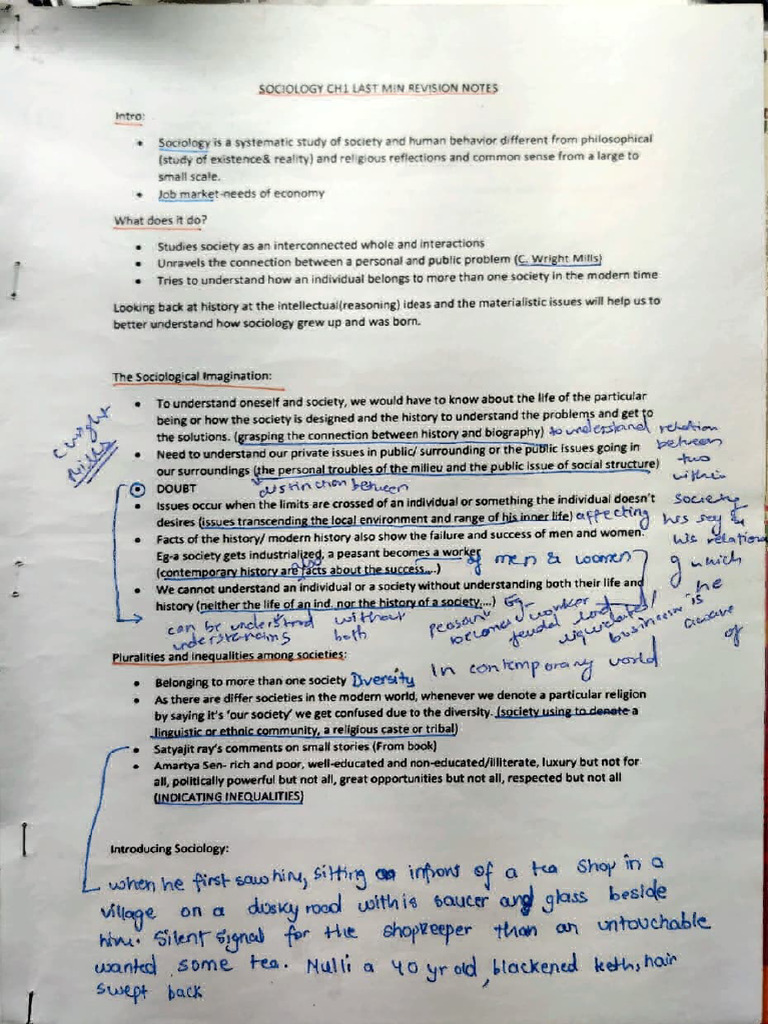 SOCIOLOGY CH1 LAST MIN REVISION NOTES
Intro:
• Sociology is a systematic study of society and human behavior different from philosophical
(study of existence& reality) and religious reflections and common sense from a large to
small scale.
• Job market-needs of economy
What does it do?
• Studies society as an interconnected whole and interactions
• Unravels the connection between a personal and public problem (C. Wright Mills)
• Tries to understand how an individual belongs to more than one society in the modern time
Looking back at history at the intellectual(reasoning) ideas and the materialistic issues will help us to
better understand how sociology grew up and was born.
The Sociological Imagination:
• To understand oneself and society, we would have to know about the life of the particular
being or how the society is designed and the history to understand the problems and get to
the solutions. (grasping the connection between history and biography) to understand relation
between
two
within
society
C wright
Mills
• Need to understand our private issues in public/ surrounding or the public issues going in
our surroundings (the personal troubles of the milieu and the public issue of social structure)
• DOUBT distinction between
• Issues occur when the limits are crossed of an individual or something the individual doesn't
desires (issues transcending the local environment and range of his inner life) affecting
his relation
which
he
is
aware
of
• Facts of the history/ modern history also show the failure and success of men and women.
Eg-a society gets industrialized, a peasant becomes a worker
(contemporary history are facts about the success...) of men & women
also
• We cannot understand an individual or a society without understanding both their life and
history (neither the life of an ind. nor the history of a society...)
can be understood without
understanding both
peasant Eg
becomes worker
feudal lord
liquidated/
businessman
Pluralities and inequalities among societies:
• Belonging to more than one society Diversity In contemporary world
• As there are differ societies in the modern world, whenever we denote a particular religion
by saying it's 'our society' we get confused due to the diversity. (society using to denote a
linguistic or ethnic community, a religious caste or tribal)
• Satyajit ray's comments on small stories (From book)
• Amartya Sen- rich and poor, well-educated and non-educated/illiterate, luxury but not for
all, politically powerful but not all, great opportunities but not all, respected but not all
(INDICATING INEQUALITIES)
Introducing Sociology:
when he first saw him, sitting infront of a tea shop in a
village on a dusky road with is saucer and glass beside
him. Silent signal for the shopkeeper than an untouchable
wanted some tea. Nulli a 40 yr old, blackened teeth, hair
swept back